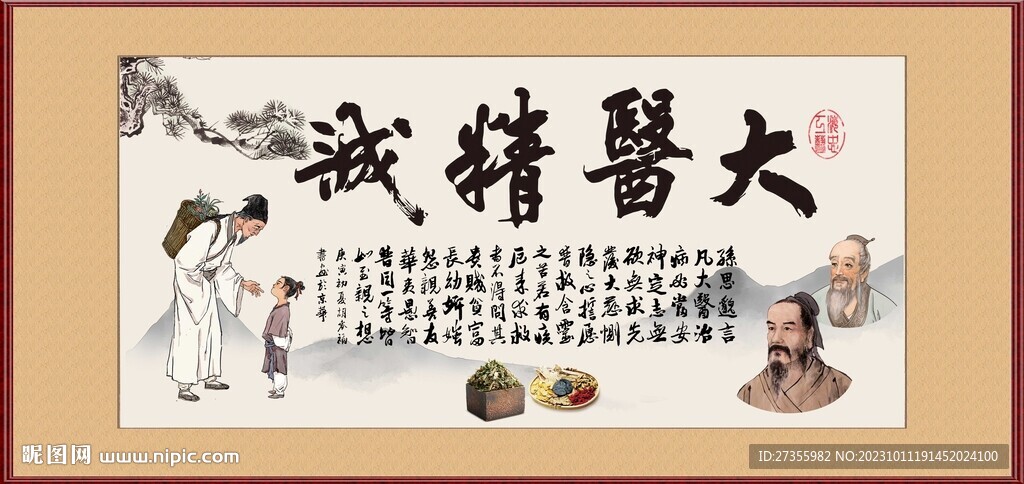 大醫精誠
孫思邈言
凡大醫治
病必當安
神定志無
欲無求先
發大慈惻
隱之心誓願
普救含靈
之苦若有疾
厄來求救
者不得問其
貴賤貧富
長幼妍媸
怨親善友
華夷愚智
普同一等皆
如至親之想
庚寅初夏
書於京華
昵图网 www.nipic.com
ID:27355982 NO:20231011191452024100